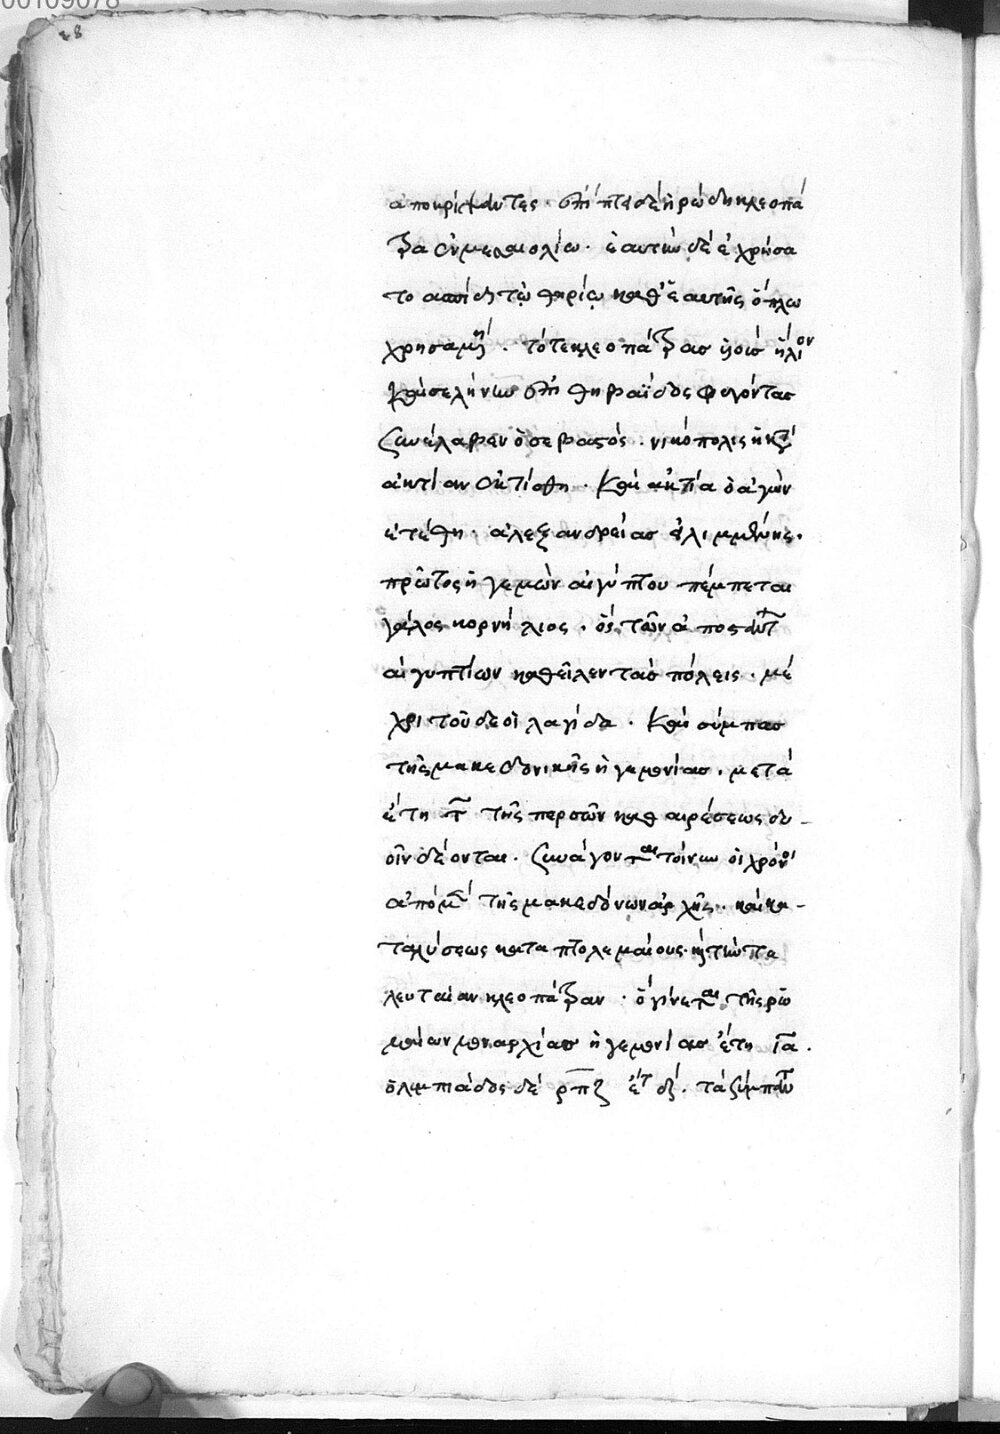 00109078
ἀποκρίναντες. ἐπήπτε δὲ ἡρώδη κλεοπά
τρα οὐ μεμαιολίω. ἑαυτὴν δὲ ἐχρήσα
το ἀσπίδι τῷ θηρίῳ καθ' ἑαυτῆς ὅπλω
χρησαμένη. τότε κλεοπάτρας υἱοὺς ἥλιον
καὶ σελήνην ἐπὶ θηβαΐδος φυγόντας
συνέλαβεν ὁ σεβαστός. νικόπολις ἡ κατ'
ἀκτίαν ἐκτίσθη. καὶ ἄκτια ὁ ἀγὼν
ἐτέθη. ἀλεξανδρείας
πρῶτος ἡγεμὼν αἰγύπτου πέμπεται
γάλος κορνήλιος. ὃς τῶν ἀποστάντων
αἰγυπτίων καθεῖλεν τὰς πόλεις. μέ
χρι τοῦδε οἱ λαγίδα. καὶ σύμπας
τῆς μακεδονικῆς ἡγεμονίας. μετὰ
ἔτη τ τῆς περσῶν καθαιρέσεως δυ-
οῖν δέονται. συνάγονται τοίνυν οἱ χρόνοι
ἀπὸ μὲν τῆς μακεδόνων ἀρχῆς. καὶ κα-
ταλύσεως κατὰ πτολεμαίους καὶ τὴν τε
λευταίαν κλεοπάτραν. ὃ γίνεται τῆς ῥω
μαίων μοναρχίας ἡγεμονίας ἔτη ια.
ὀλυμπιάδος δὲ ρπζ ἔτος. τὰ σύμπαντ